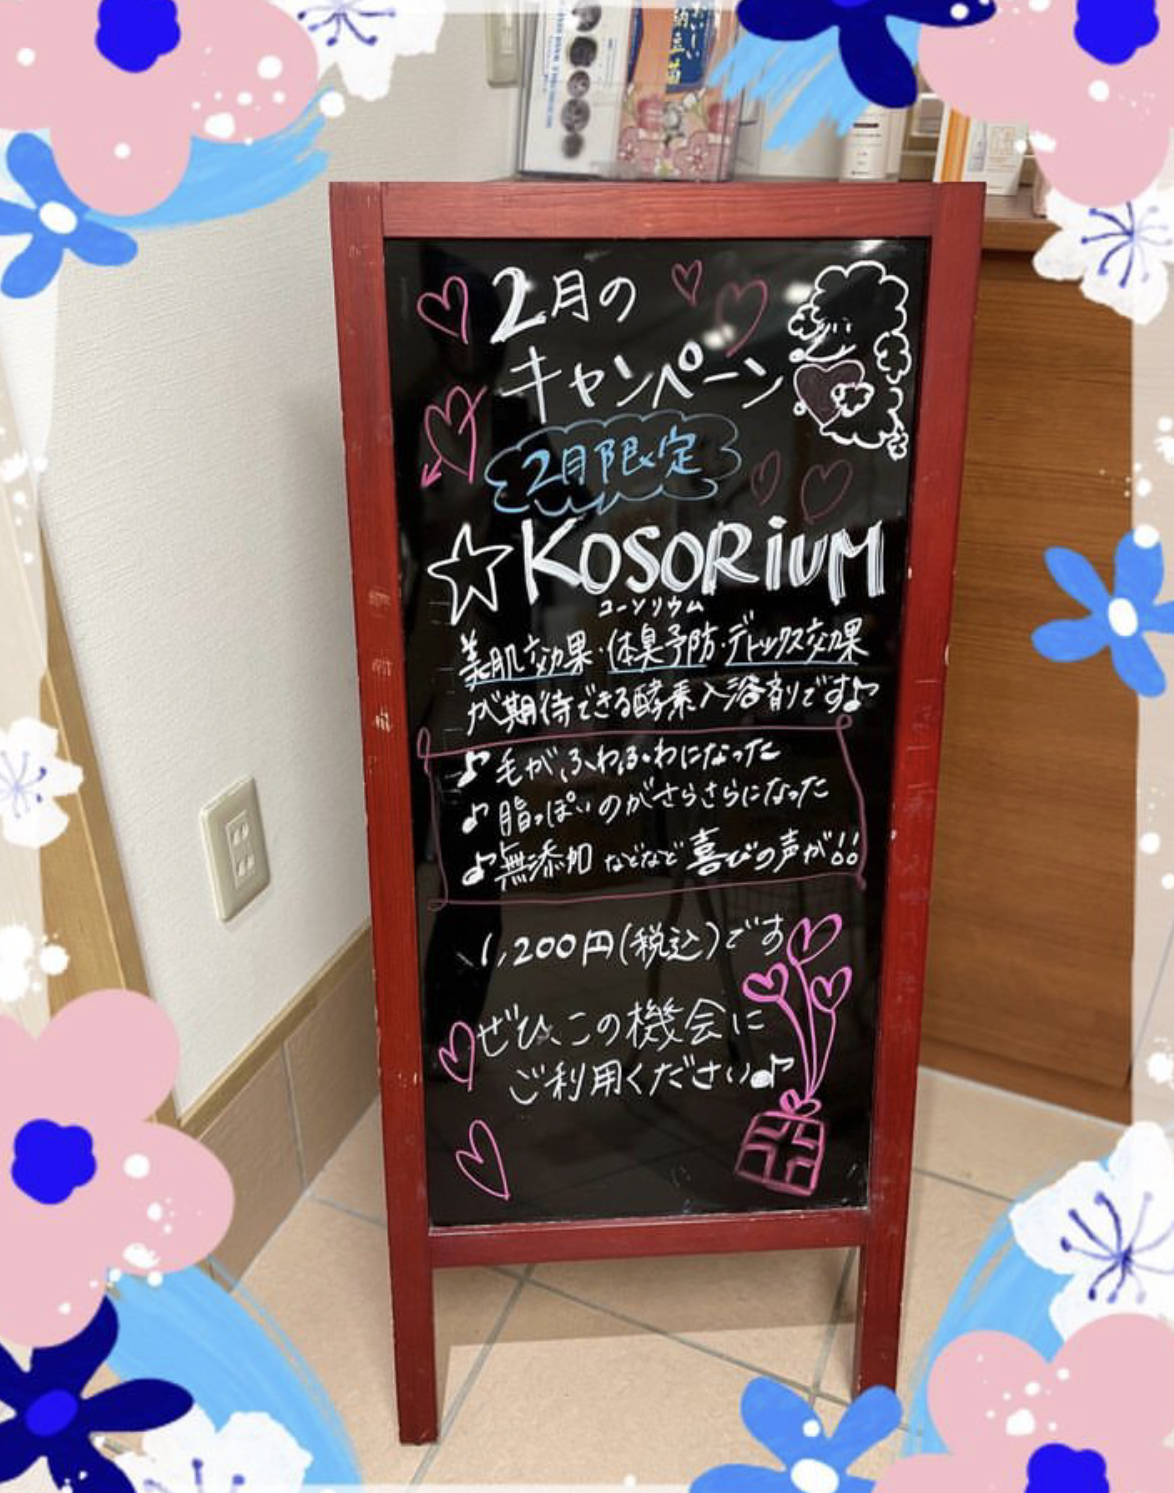 おいしい
2月の
キャンペーン
2月限定
☆KOSORiUM
コーソリウム
美肌効果・体臭予防・デトックス効果
が期待できる酵素入浴剤です♪
♪毛がふわふわになった
♪脂っぽいのがさらさらになった
♪無添加 などなど喜びの声が!!
1,200円(税込)です
ぜひ、この機会に
ご利用ください♪